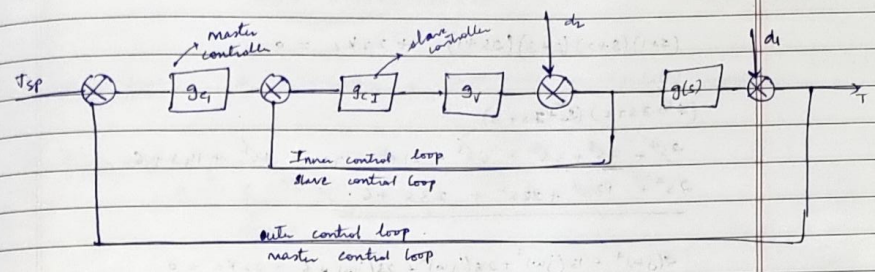 master
controller
slave
controller
d₂
d₁
TSP
gc₁
gc I
gv
g(s)
T
Inner control loop
slave control loop
oute control loop
master control loop